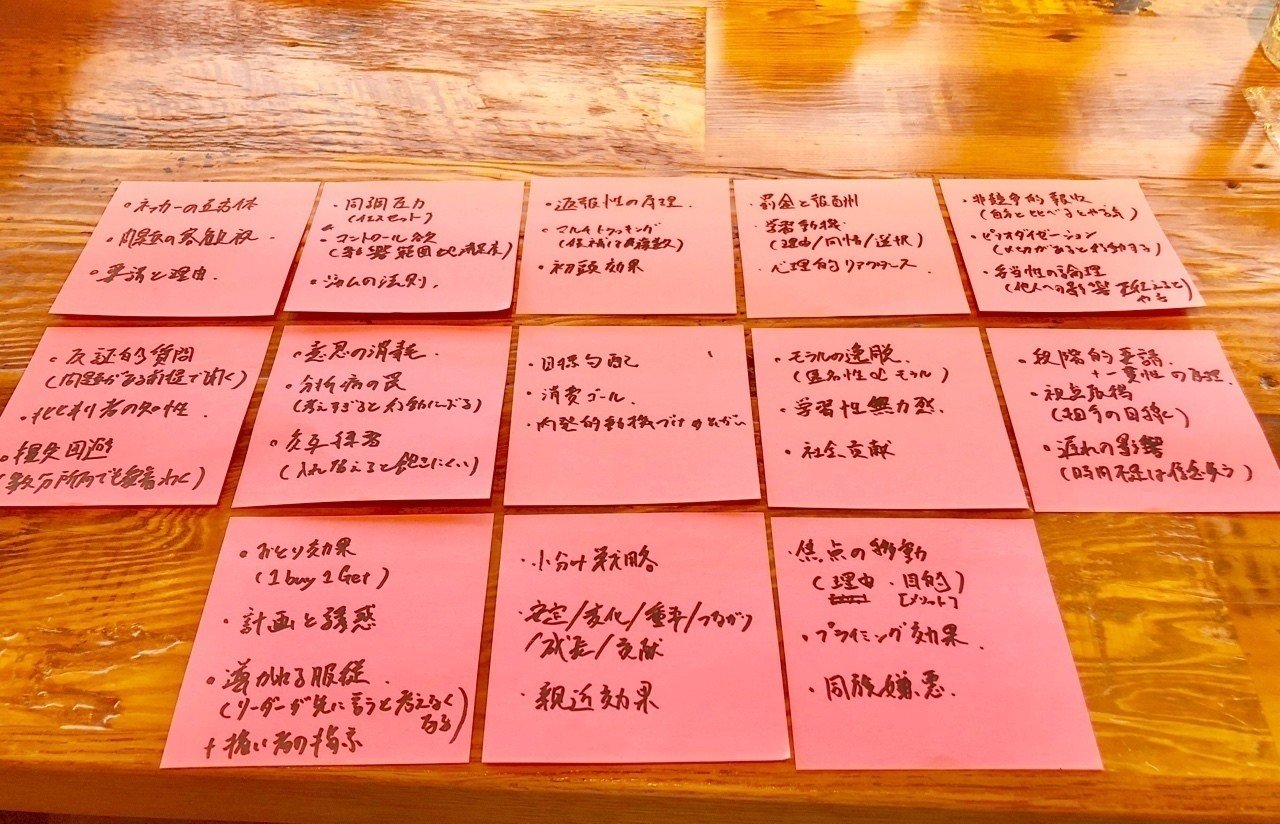 ・ネッカーの立方体
・問題の客観視
・要請と理由.
・同調圧力
(イエスセット)
・コントロール欲
・ジャムの法則.
・返報性の原理.
・マルチトラッキング
・初頭効果
・罰金と報酬
・学習動機
(理由/同情/選択)
・心理的リアクタンス.
・非競争的報酬
(自分と比べるとやる気)
・ピリオダイゼーション
(〆切があると行動する)
・正当性の論理
(他人への影響
・反証的質問
(問題がある前提で聞く)
・批判者の知性.
・損失回避
・意思の消耗.
・分析病の罠
(考えすぎると行動にぶる)
・交互
(入れ替えると飽きにくい)
・目標勾配
・消費ゴール.
・内発的動機づけ
・モラルの逸脱.
(匿名性 モラル)
・学習性無力感.
・社会貢献
・段階的要請
+一貫性の原理.
・視点取得
(相手の目線に)
・遅れの影響
(時間不足は信念失う)
・おとり効果
(1buy 2Get)
・計画と誘惑
・導かれる服従.
(リーダーが先に言うと考えなく
なる)
+強い者の指示
・小分け戦略
・安定/変化/重要/つながり
/成長/貢献
・親近効果
・焦点の移動
(理由・目的)
[メリット]
・プライミング効果.
・同族嫌悪.